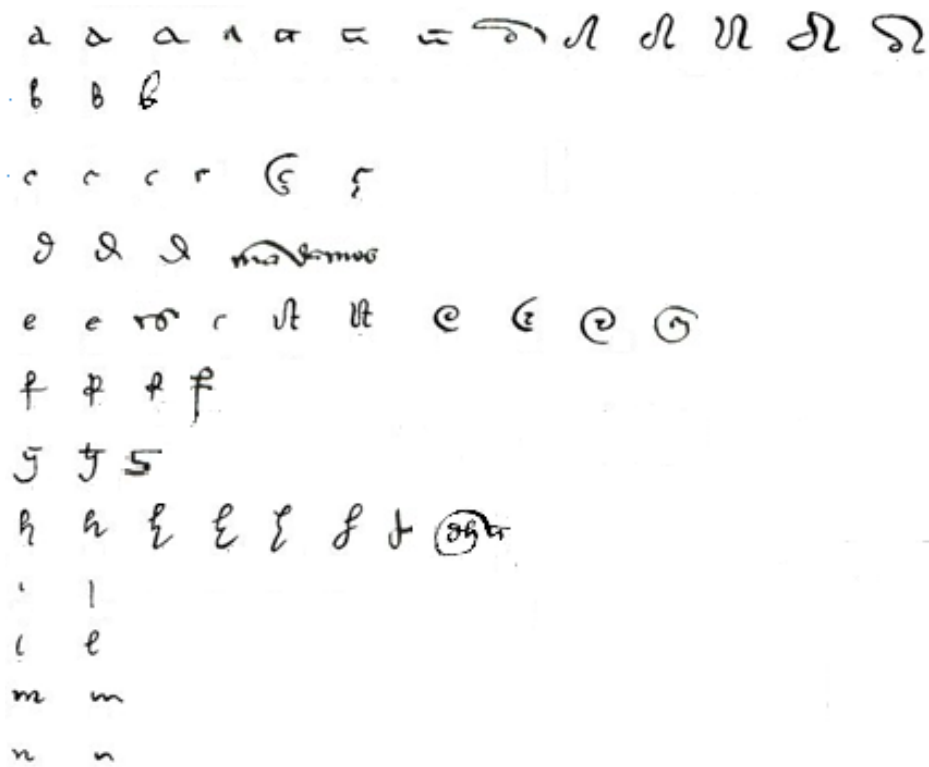 a a a a a a a a a a a a a
b b b
c c c c c c
d d d
e e e e e e e e e
f f f f
g g g
h h h h h h h dha
i i
l l
m m
n n